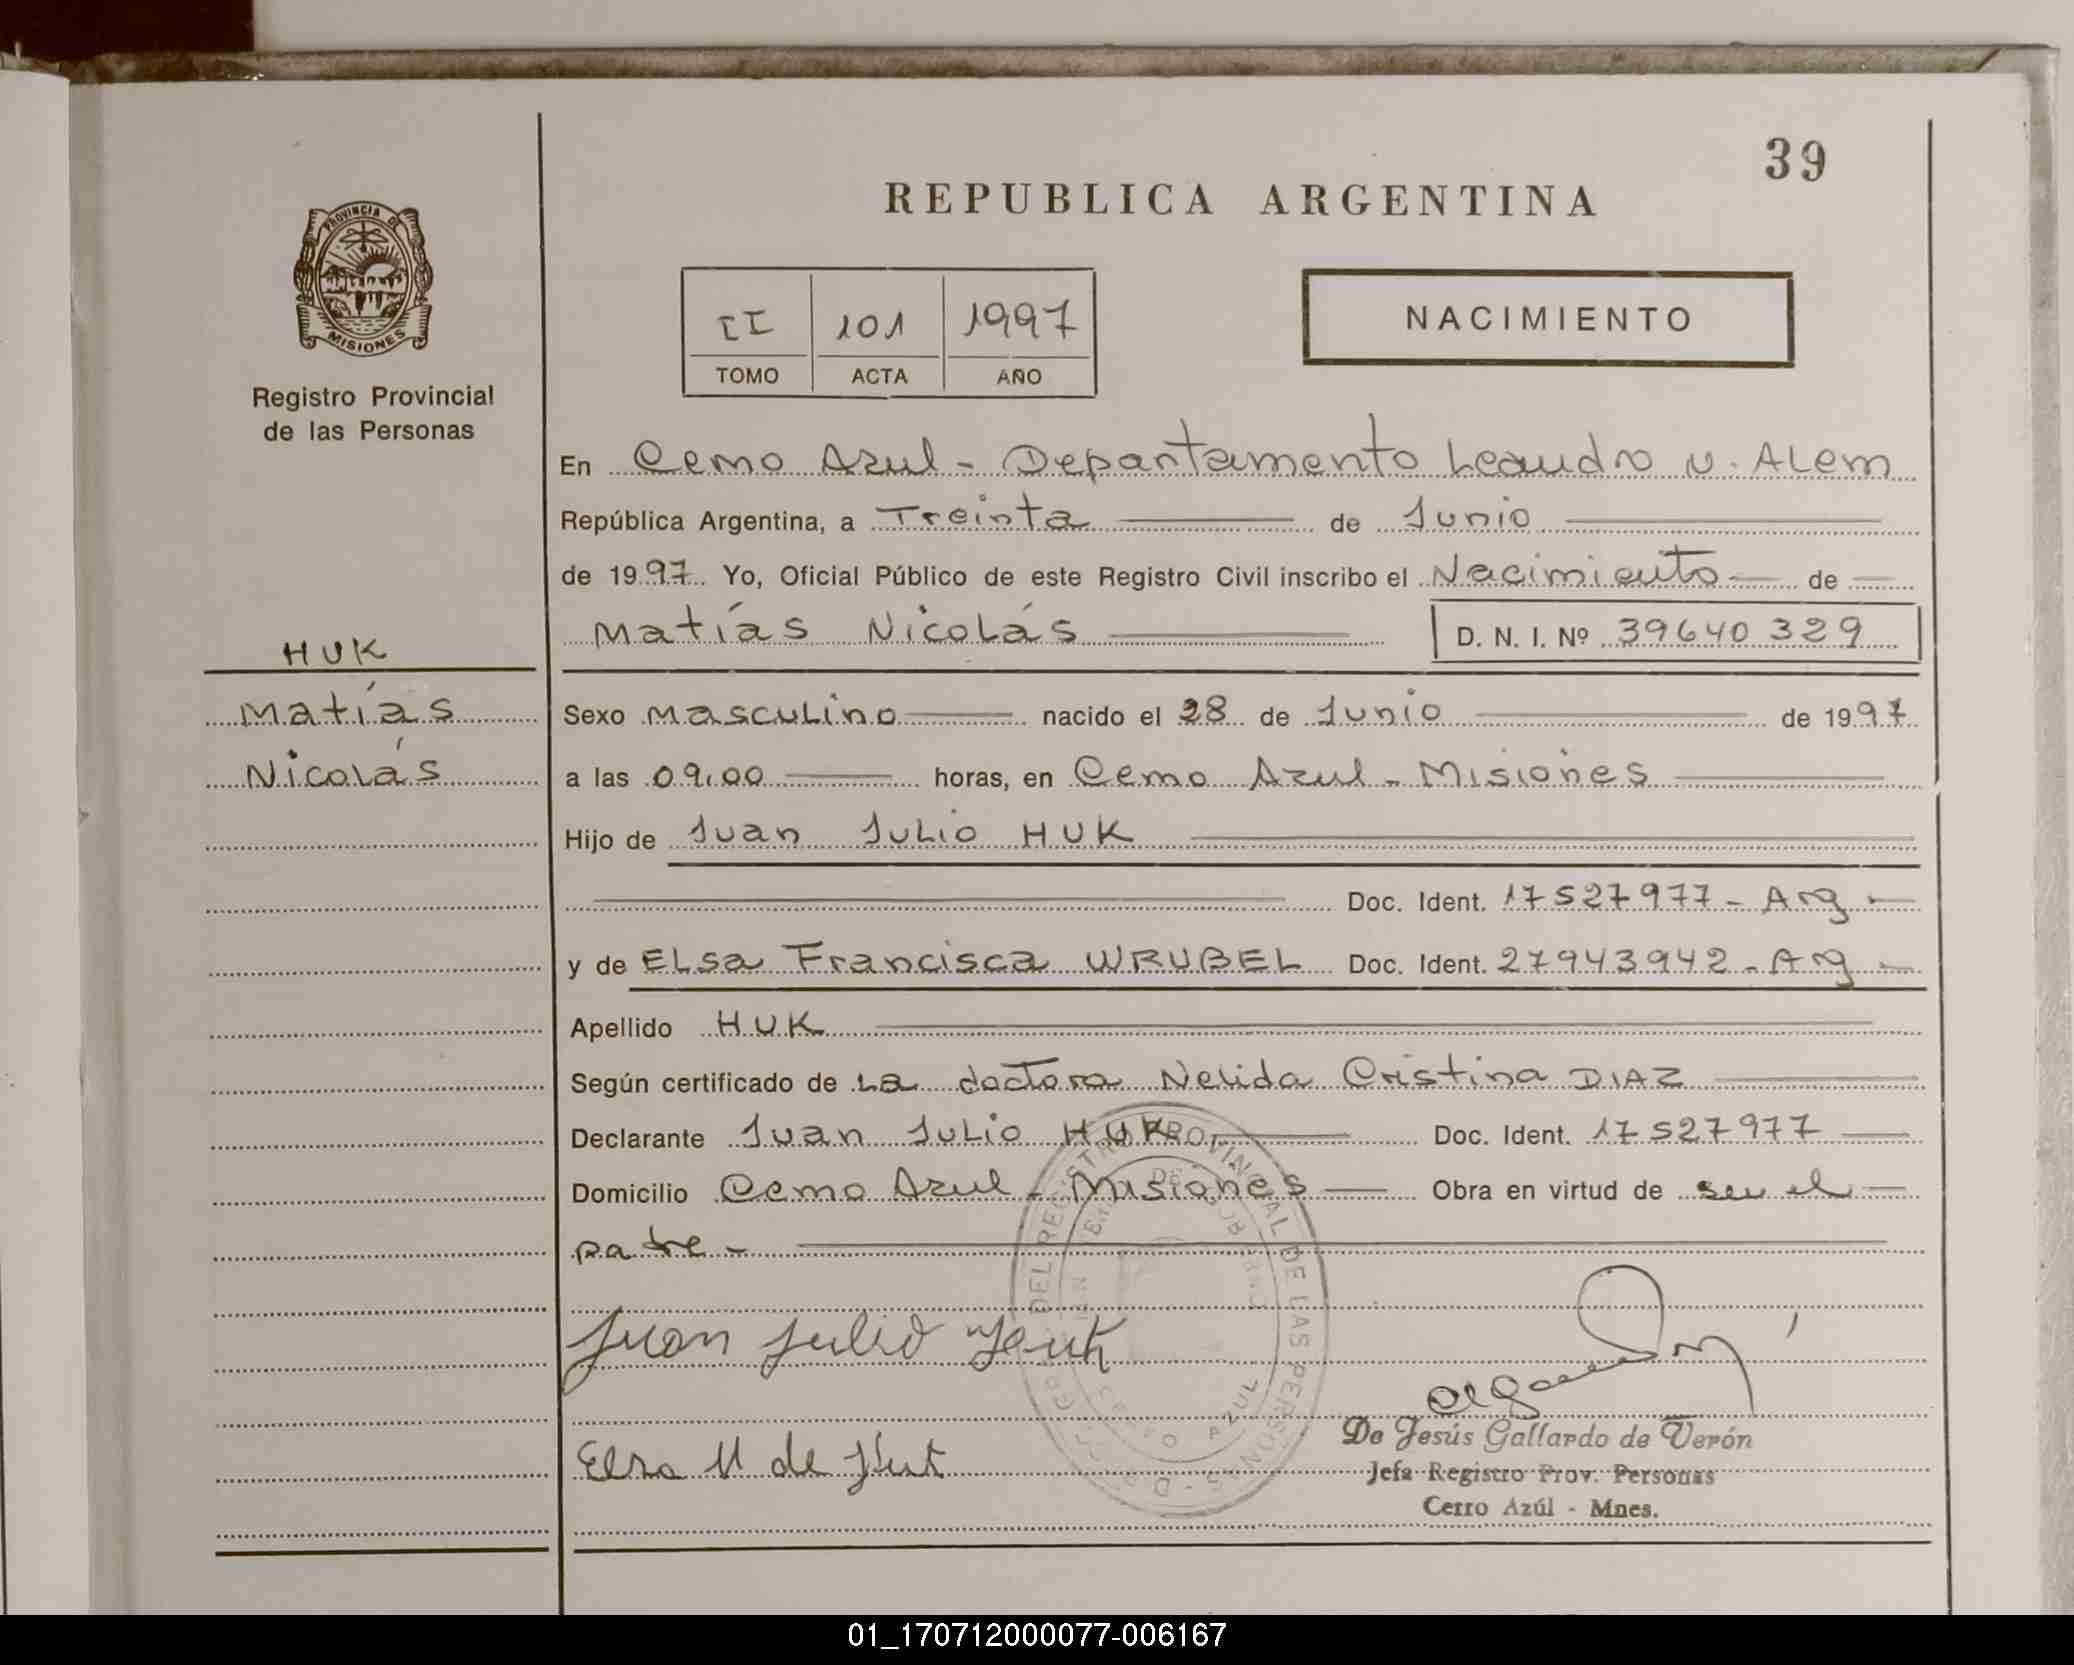 39
REPUBLICA ARGENTINA
PROVINCIA DE
MISIONES
II 101 1997
TOMO ACTA AÑO
NACIMIENTO
Registro Provincial
de las Personas
En Cerro Azul - Departamento Leandro N. Alem
República Argentina, a Treinta de Junio
de 1997 Yo, Oficial Público de este Registro Civil inscribo el Nacimiento de
Matías Nicolás D. N. I. Nº 39640329
HUK
Matías
Nicolás
Sexo Masculino nacido el 28 de Junio de 1997
a las 09,00 horas, en Cerro Azul - Misiones
Hijo de Juan Julio HUK
Doc. Ident. 17527977 - Arg -
y de Elsa Francisca WRUBEL Doc. Ident. 27943942 - Arg -
Apellido HUK
Según certificado de La doctora Nelida Cristina DIAZ
Declarante Juan Julio HUK Doc. Ident. 17527977
Domicilio Cerro Azul - Misiones Obra en virtud de ser el
padre -
DEL REGISTRO PROVINCIAL DE LAS PERSONAS
CERRO AZUL
Juan Julio Huk
Elsa W de Huk
De Jesús Gallardo de Verón
Jefa Registro Prov. Personas
Cerro Azúl - Mnes.
01_170712000077-006167